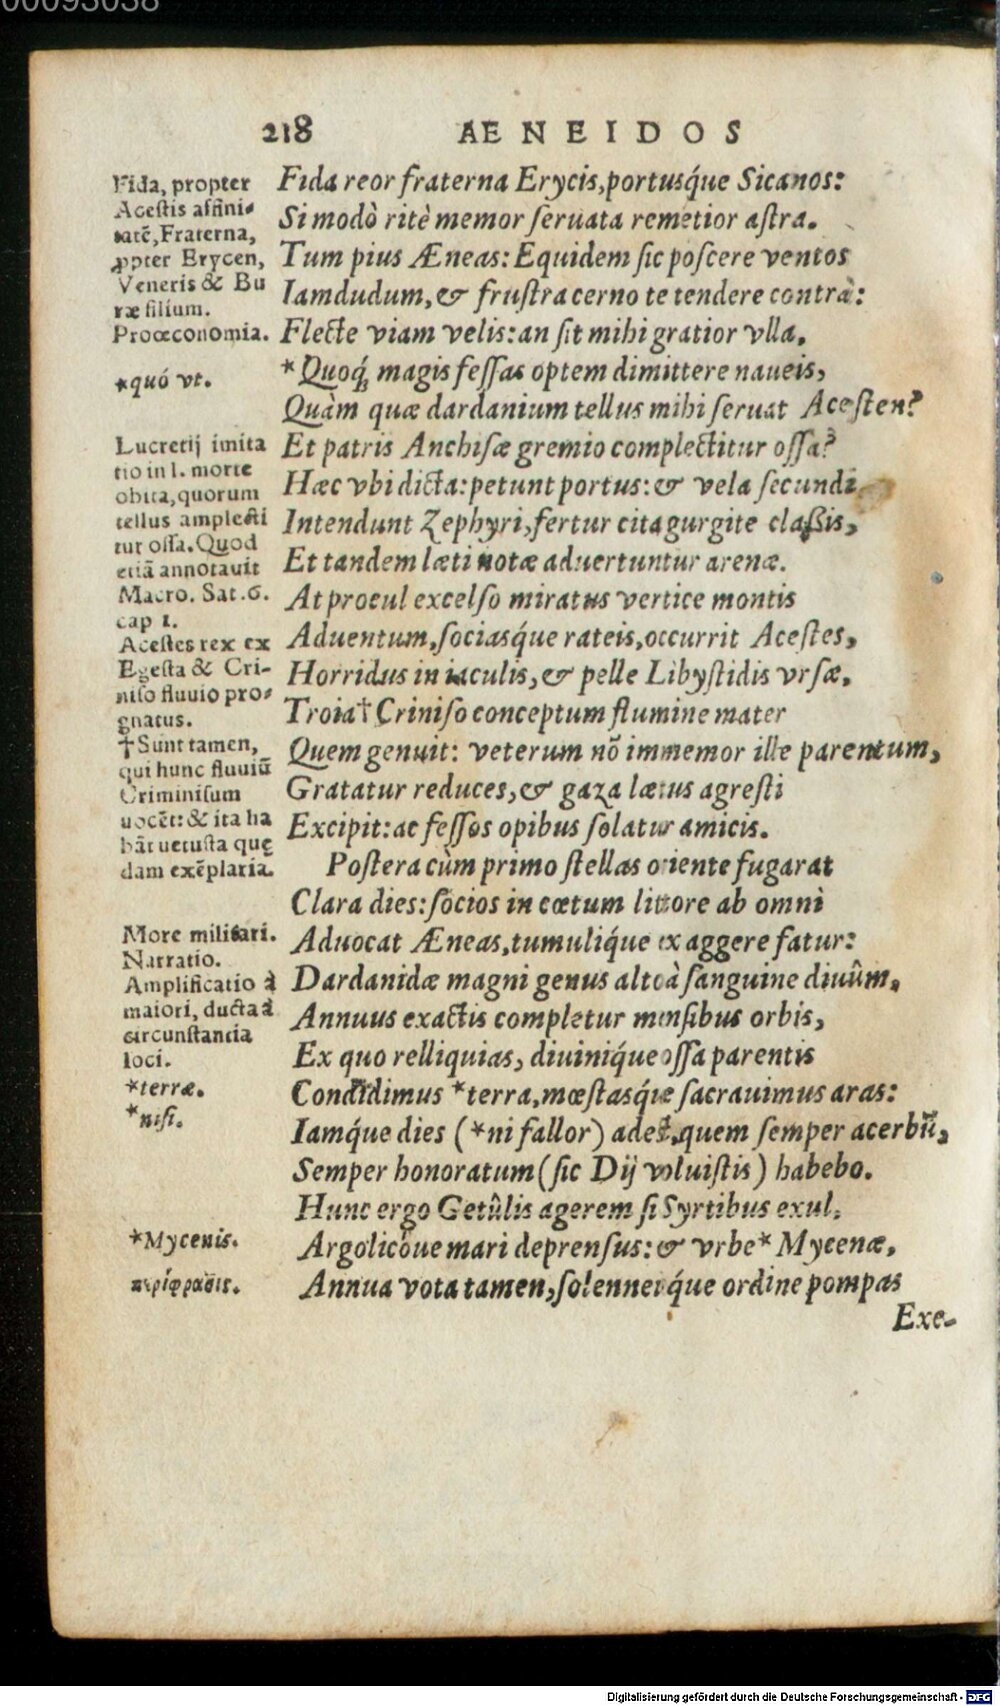 00093038
218 AENEIDOS
Fida reor fraterna Erycis, portusq́ue Sicanos:
Si modò ritè memor ſeruata remetior aſtra.
Tum pius Æneas: Equidem ſic poſcere ventos
Iamdudum, & fruſtra cerno te tendere contrà:
Flecte viam velis: an ſit mihi gratior vlla,
*Quoq́; magis feſſas optem dimittere naueis,
Quàm quæ dardanium tellus mihi ſeruat Aceſten?
Et patris Anchiſæ gremio complectitur oſſa?
Hæc vbi dicta: petunt portus: & vela ſecundi
Intendunt Zephyri, fertur cita gurgite claßis,
Et tandem læti notæ aduertuntur arenæ.
At procul excelſo miratus vertice montis
Aduentum, ſociasq́ue rateis, occurrit Aceſtes,
Horridus in iaculis, & pelle Libyſtidis vrſæ,
Troia† Criniſo conceptum flumine mater
Quem genuit: veterum nō immemor ille parentum,
Gratatur reduces, & gaza lætus agreſti
Excipit: ac feſſos opibus ſolatur amicis.
Poſtera cùm primo ſtellas oriente fugarat
Clara dies: ſocios in cœtum littore ab omni
Aduocat Æneas, tumuliq́ue ex aggere fatur:
Dardanidæ magni genus alto à ſanguine diuûm,
Annuus exactis completur menſibus orbis,
Ex quo relliquias, diuiniq́ue oſſa parentis
Condidimus *terra, mœſtasq́ue ſacrauimus aras:
Iamq́ue dies (*ni fallor) adeſt, quem ſemper acerbū,
Semper honoratum (ſic Dij voluiſtis) habebo.
Hunc ergo Getûlis agerem ſi Syrtibus exul,
Argolicóue mari deprenſus: & vrbe *Mycenæ,
Annua vota tamen, ſolenneisq́ue ordine pompas
Exe-
Fida, propter
Aceſtis affini-
tatē, Fraterna,
ꝓpter Erycen,
Veneris & Bu
ræ filium.
Proœconomia.
*quó vt.
Lucretij imita
tio in l. morte
obita, quorum
tellus amplecti
tur oſſa. Quod
etiā annotauit
Macro. Sat. 6.
cap 1.
Aceſtes rex ex
Egeſta & Cri-
niſo fluuio pro-
gnatus.
†Sunt tamen,
qui hunc fluuiū
Criminiſum
uocēt: & ita ha
bāt uetuſta quę
dam exēplaria.
More militari.
Narratio.
Amplificatio à
maiori, ducta à
circunſtantia
loci.
*terræ.
*niſi.
*Mycenis.
περίφρασις.
Digitalisierung gefördert durch die Deutsche Forschungsgemeinschaft - DFG